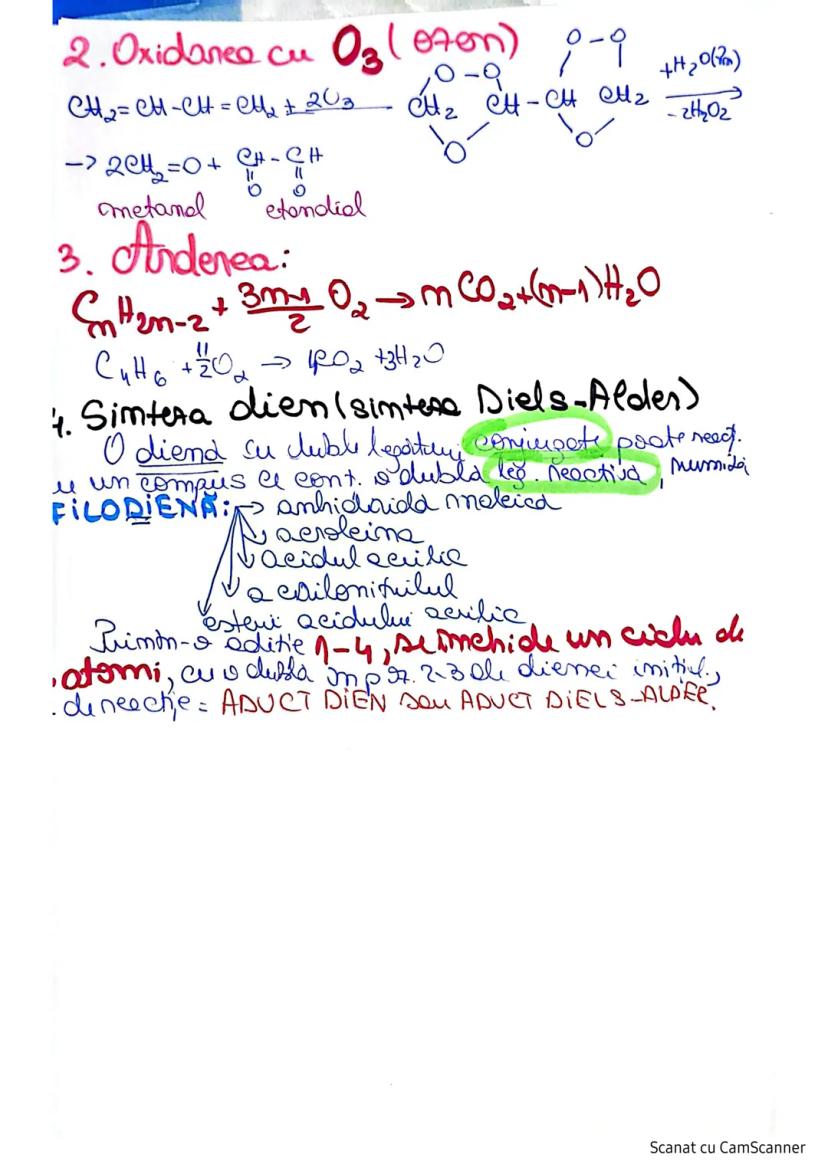 2. Oxidarea cu O3 (ozon)
CH2=CH-CH=CH2 + 2O3
O-O O-O
CH2 CH-CH CH2 +H2O(Zn) -2H2O2
O O
-> 2CH2=O + CH-CH
O O
metanal etandial
3. Arderea:
CnH2n-2 + 3n-1/2 O2 → nCO2+(n-1)H2O
C4H6 + 11/2 O2 → 4CO2 +3H2O
4. Sinteza dien (sinteza Diels-Alder)
O dienă cu duble legături conjugate poate react.
cu un compus ce cont. o dublă leg. reactivă, numită
FILODIENĂ: → anhidrida maleică
acroleina
acidul acrilic
acrilonitrilul
esterii acidului acrilic
Printr-o adiție 1-4, se închide un ciclu de
atomi, cu o dublă în poz. 2-3 ale dienei inițial.,
. de reacție = ADUCT DIEN sau ADUCT DIELS-ALDER.
Scanat cu CamScanner